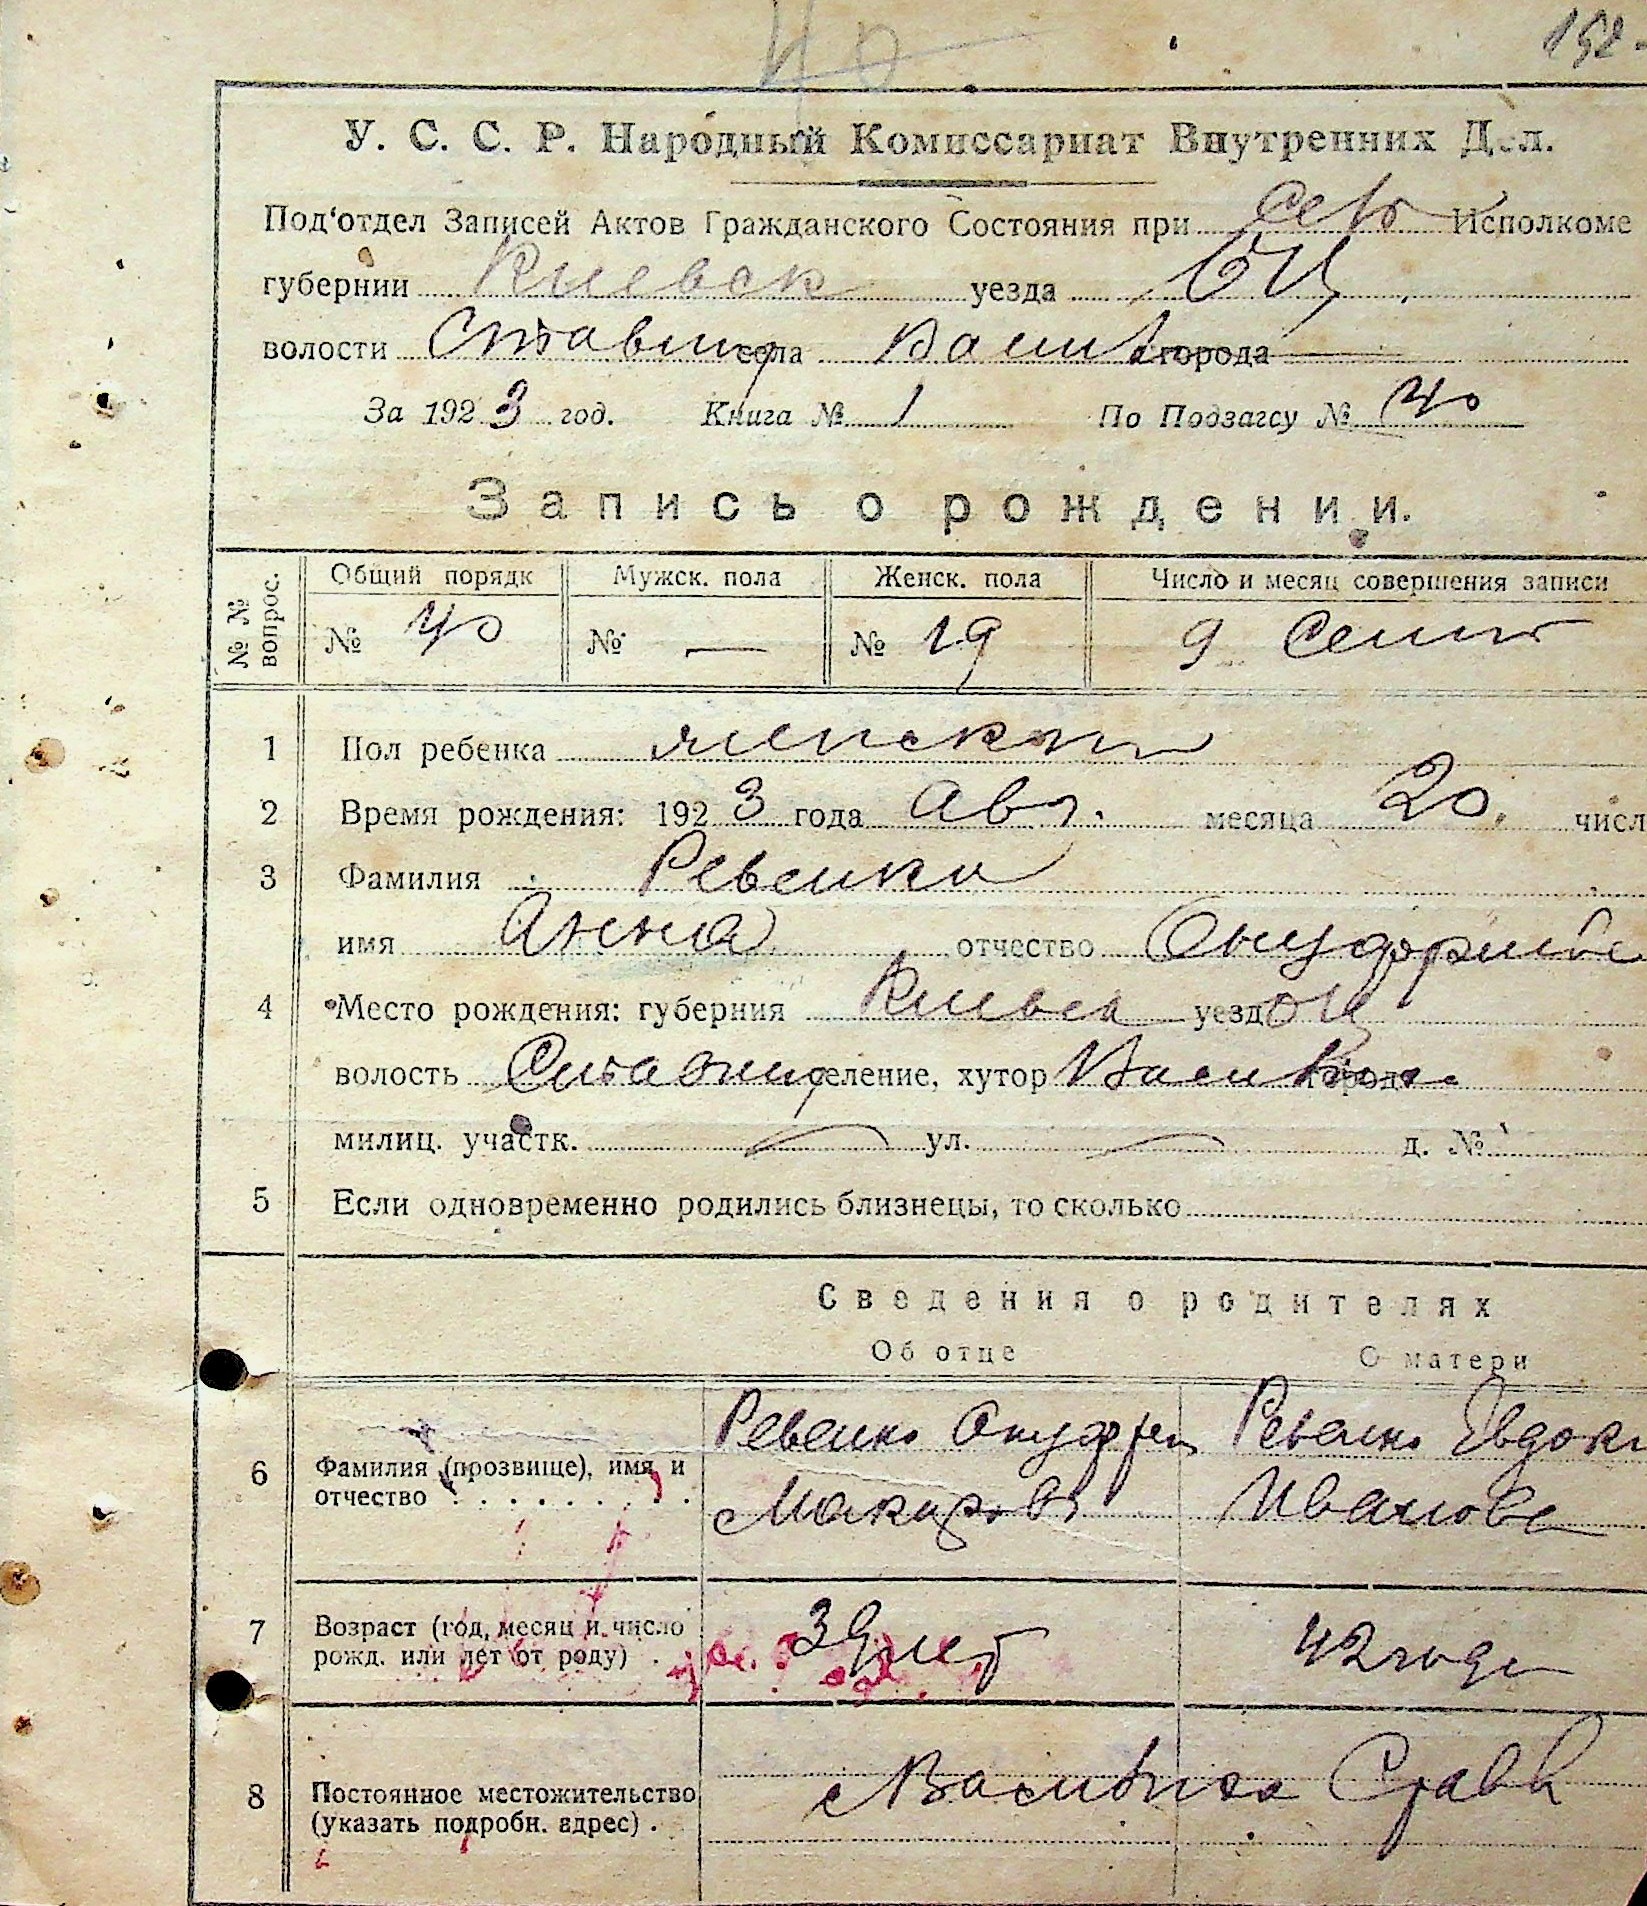 192
40
У. С. С. Р. Народный Комиссариат Внутренних Дел.
Под'отдел Записей Актов Гражданского Состояния при Исполкоме
губернии Киевск уезда БЦ
волости Ставищ села города
За 1923 год. Книга № 1 По Подзагсу № 40
Запись о рождении.
№ № вопрос. Общий порядк Мужск. пола Женск. пола Число и месяц совершения записи
№ 40 № — № 19 9 Сент
1 Пол ребенка женский
2 Время рождения: 1923 года Авг. месяца 20. числ
3 Фамилия Ревенко
имя Анна отчество Онуфриев
4 Место рождения: губерния Киевск уезд БЦ
волость Ставищ селение, хутор город
милиц. участк. ул. д. №
5 Если одновременно родились близнецы, то сколько
Сведения о родителях
Об отце О матери
6 Фамилия (прозвище), имя и Ревенко Онуфрий Ревенко Евдоки
отчество Макаров Иванова
7 Возраст (год, месяц и число 39 лет 42 года
рожд. или лет от роду)
8 Постоянное местожительство
(указать подробн. адрес)